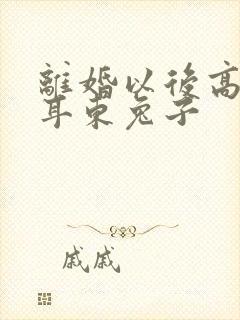 離婚以後高
耳朵兔子
戚戚